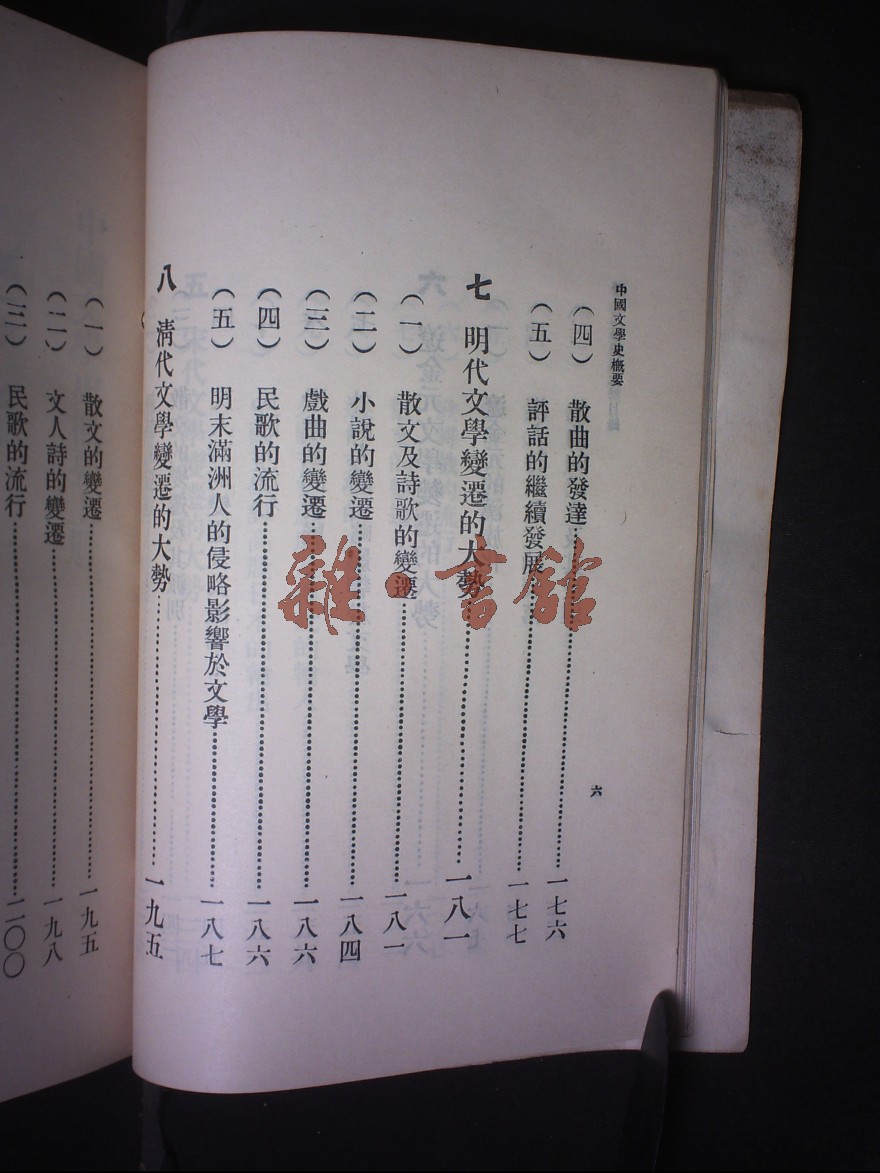 中國文學史概要
六
（四）　散曲的發達……一七六
（五）　評話的繼續發展……一七七
七　明代文學變遷的大勢……一八一
（一）　散文及詩歌的變遷……一八一
（二）　小說的變遷……一八四
（三）　戲曲的變遷……一八六
（四）　民歌的流行……一八六
（五）　明末滿洲人的侵略影響於文學……一八七
八　清代文學變遷的大勢……一九五
（一）　散文的變遷……一九五
（二）　文人詩的變遷……一九八
（三）　民歌的流行……二〇〇
雜·書館